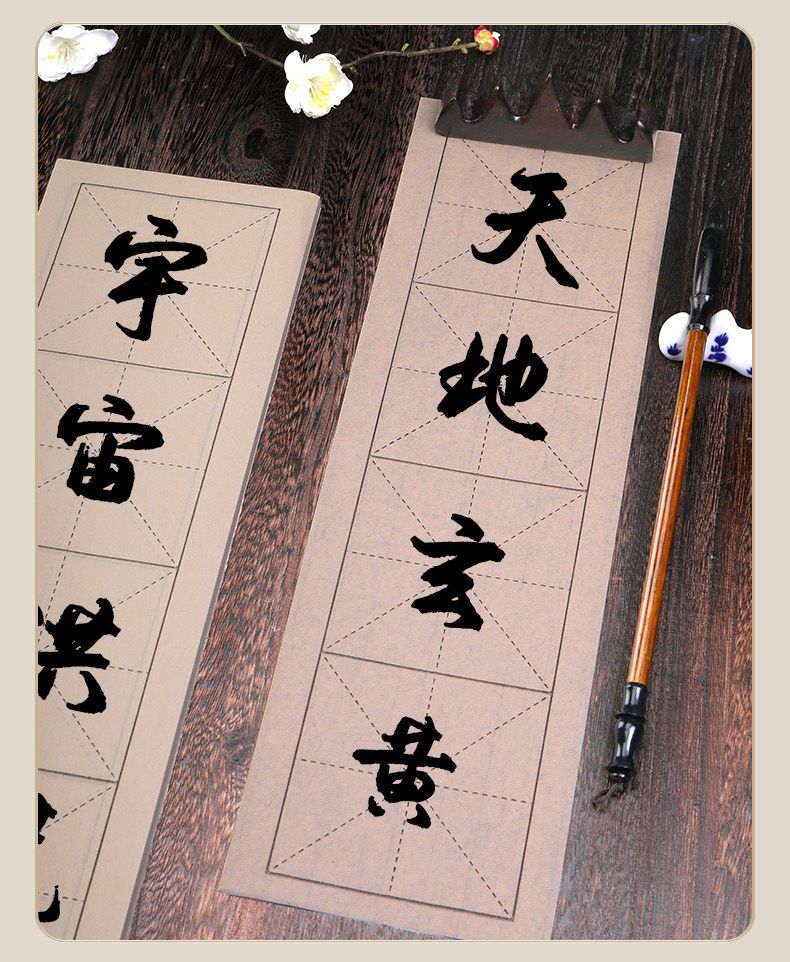 天地玄黄
宇宙洪